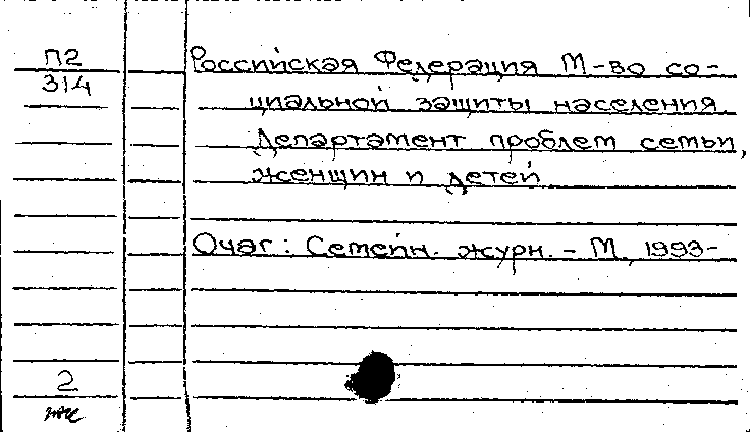 П2
314
Российская Федерация М-во со-
циальной защиты населения
Департамент проблем семьи,
женщин и детей
Очаг: Семейн. журн. – М., 1993-
2